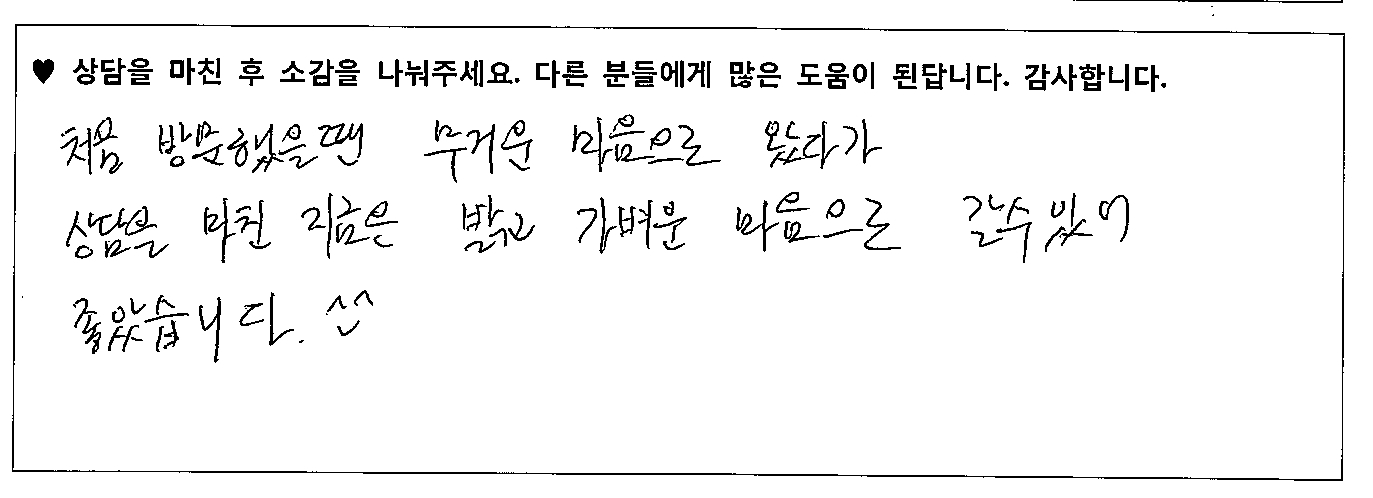 ♥ 상담을 마친 후 소감을 나눠주세요. 다른 분들에게 많은 도움이 된답니다. 감사합니다.
처음 방문했을땐 무거운 마음으로 왔다가
상담을 마친 지금은 밝고 가벼운 마음으로 갈수있어
좋았습니다. ^^